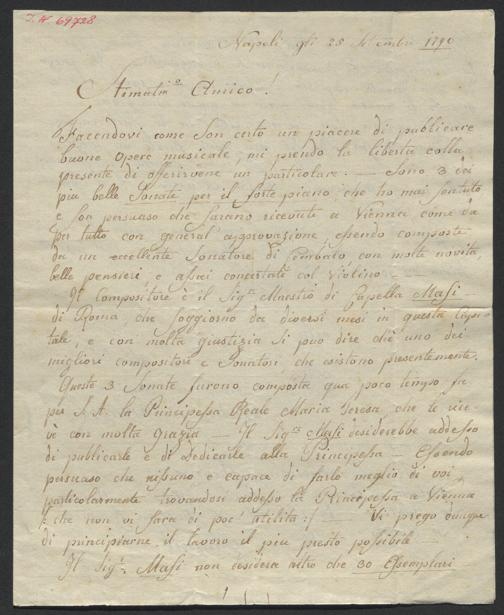 I. N. 69728
Napoli gli 28 Settembre 1790
Stimatis.o Amico!
Facendovi come son certo un piacere di publicare
buone opere musicale, mi prendo la libertà colla
presente di offerirvene un particolare. — Sono 3 dei
piu belle Sonate per il forte piano che ho mai sentuto
e son persuaso che sarano ricevuti a Vienna come da
per tutto con general approvazione essendo composte
da un eccellente Sonatore di Cembalo, con molte novità,
belle pensieri e assai concertate col Violino. —
Il Compositore è il Sig.r Maestro di Capella Masi
di Roma che soggiorno da diversi mesi in questa Capi-
tale, e con molta giustizia si può dire che uno dei
migliori compositori e Sonatori che esistono presentemente.
Queste 3 Sonate furono composta qua poco tempo fa
per S. A. la Principessa Reale Maria Teresa, che le rice-
vè con molta grazia — Il Sig.r Masi desiderebbe addesso
di publicarle e di Dedicarle alla Principessa — Essendo
persuaso che nissuno e capace di farlo meglio di voi,
particolarmente trovandosi addesso la Principessa a Vienna
/: che non vi sara di poc' utilità :/ — Vi prego dunque
di principiarne il lavoro il piu presto possibile —
Il Sig.r Masi non desidera altro che 30 Essemplari